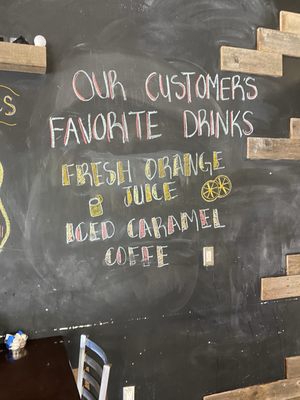 OUR CUSTOMER'S
FAVORITE DRINKS
FRESH ORANGE
JUICE
ICED CARAMEL
COFFE